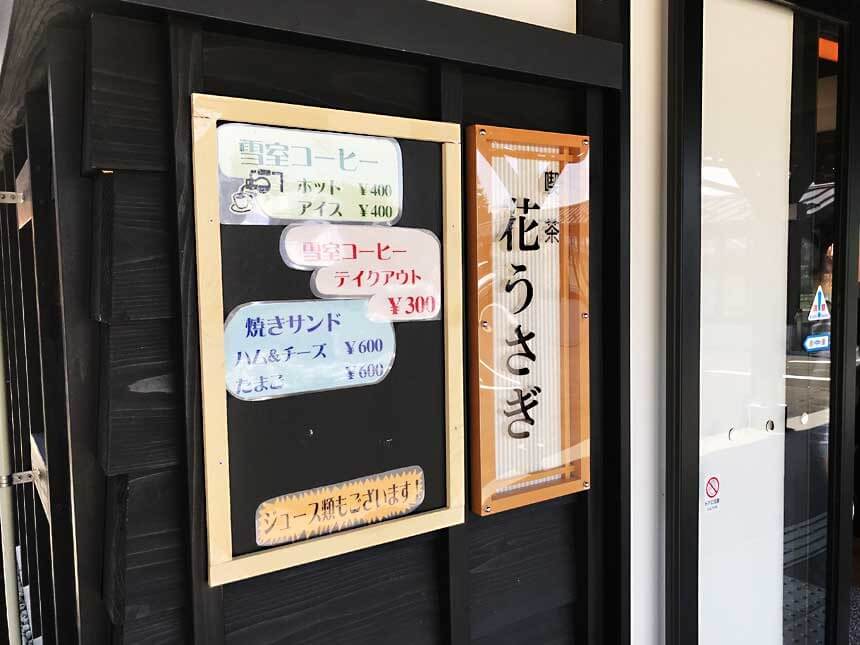 雪室コーヒー
ホット ¥400
アイス ¥400
雪室コーヒー
テイクアウト
¥300
焼きサンド
ハム&チーズ ¥600
たまご ¥600
ジュース類もございます!
喫茶
花うさぎ